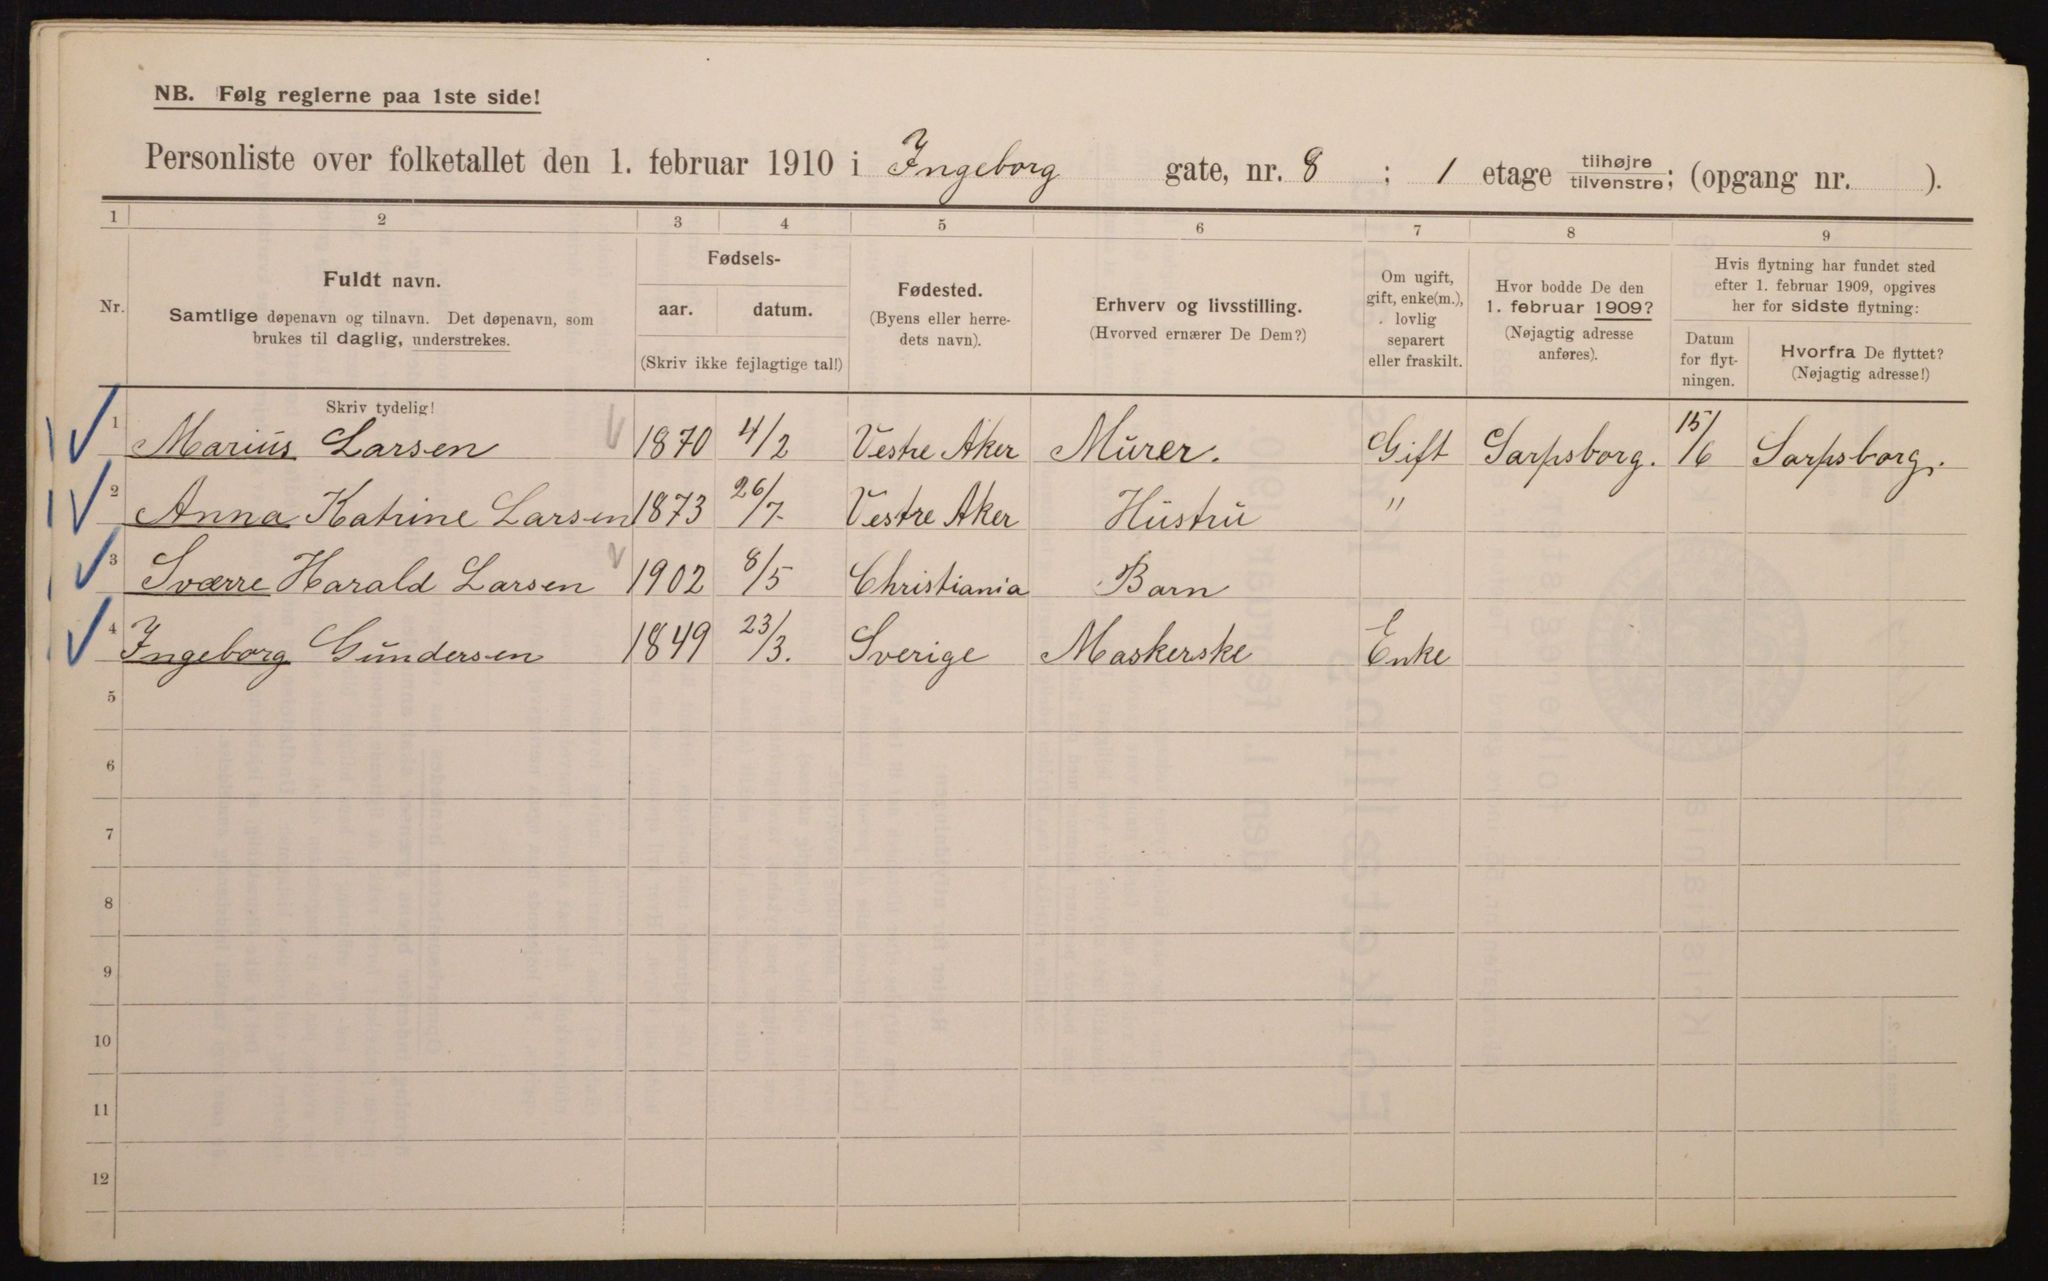 NB. Følg reglerne paa 1ste side!
Personliste over folketallet den 1. februar 1910 i Ingeborg gate, nr. 8 ; 1 etage tilhøjre/tilvenstre; (opgang nr. ).
1 2 3 4 5 6 7 8 9
Nr.
Fuldt navn.
Samtlige døpenavn og tilnavn. Det døpenavn, som
brukes til daglig, understrekes.
Skriv tydelig!
Fødsels-
aar. datum.
(Skriv ikke fejlagtige tal!)
Fødested.
(Byens eller herre-
dets navn).
Erhverv og livsstilling.
(Hvorved ernærer De Dem?)
Om ugift,
gift, enke(m.),
lovlig
separert
eller fraskilt.
Hvor bodde De den
1. februar 1909?
(Nøjagtig adresse
anføres).
Hvis flytning har fundet sted
efter 1. februar 1909, opgives
her for sidste flytning:
Datum
for flyt-
ningen.
Hvorfra De flyttet?
(Nøjagtig adresse!)
1 Marius Larsen 1870 4/2 Vestre Aker Murer. Gift Sarpsborg. 15/6 Sarpsborg.
2 Anna Katrine Larsen 1873 26/7. Vestre Aker Hustru "
3 Sværre Harald Larsen 1902 8/5 Christiania Barn
4 Ingeborg Gundersen 1849 23/3. Sverige Maskerske Enke
5
6
7
8
9
10
11
12